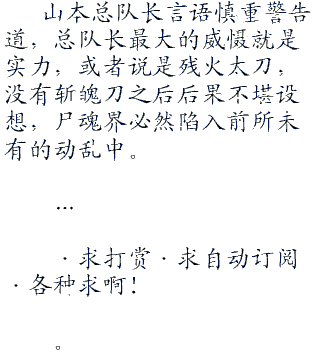 山本总队长言语慎重警告
道，总队长最大的威慑就是
实力，或者说是残火太刀，
没有斩魄刀之后后果不堪设
想，尸魂界必然陷入前所未
有的动乱中。
...
·求打赏·求自动订阅
·各种求啊！
。